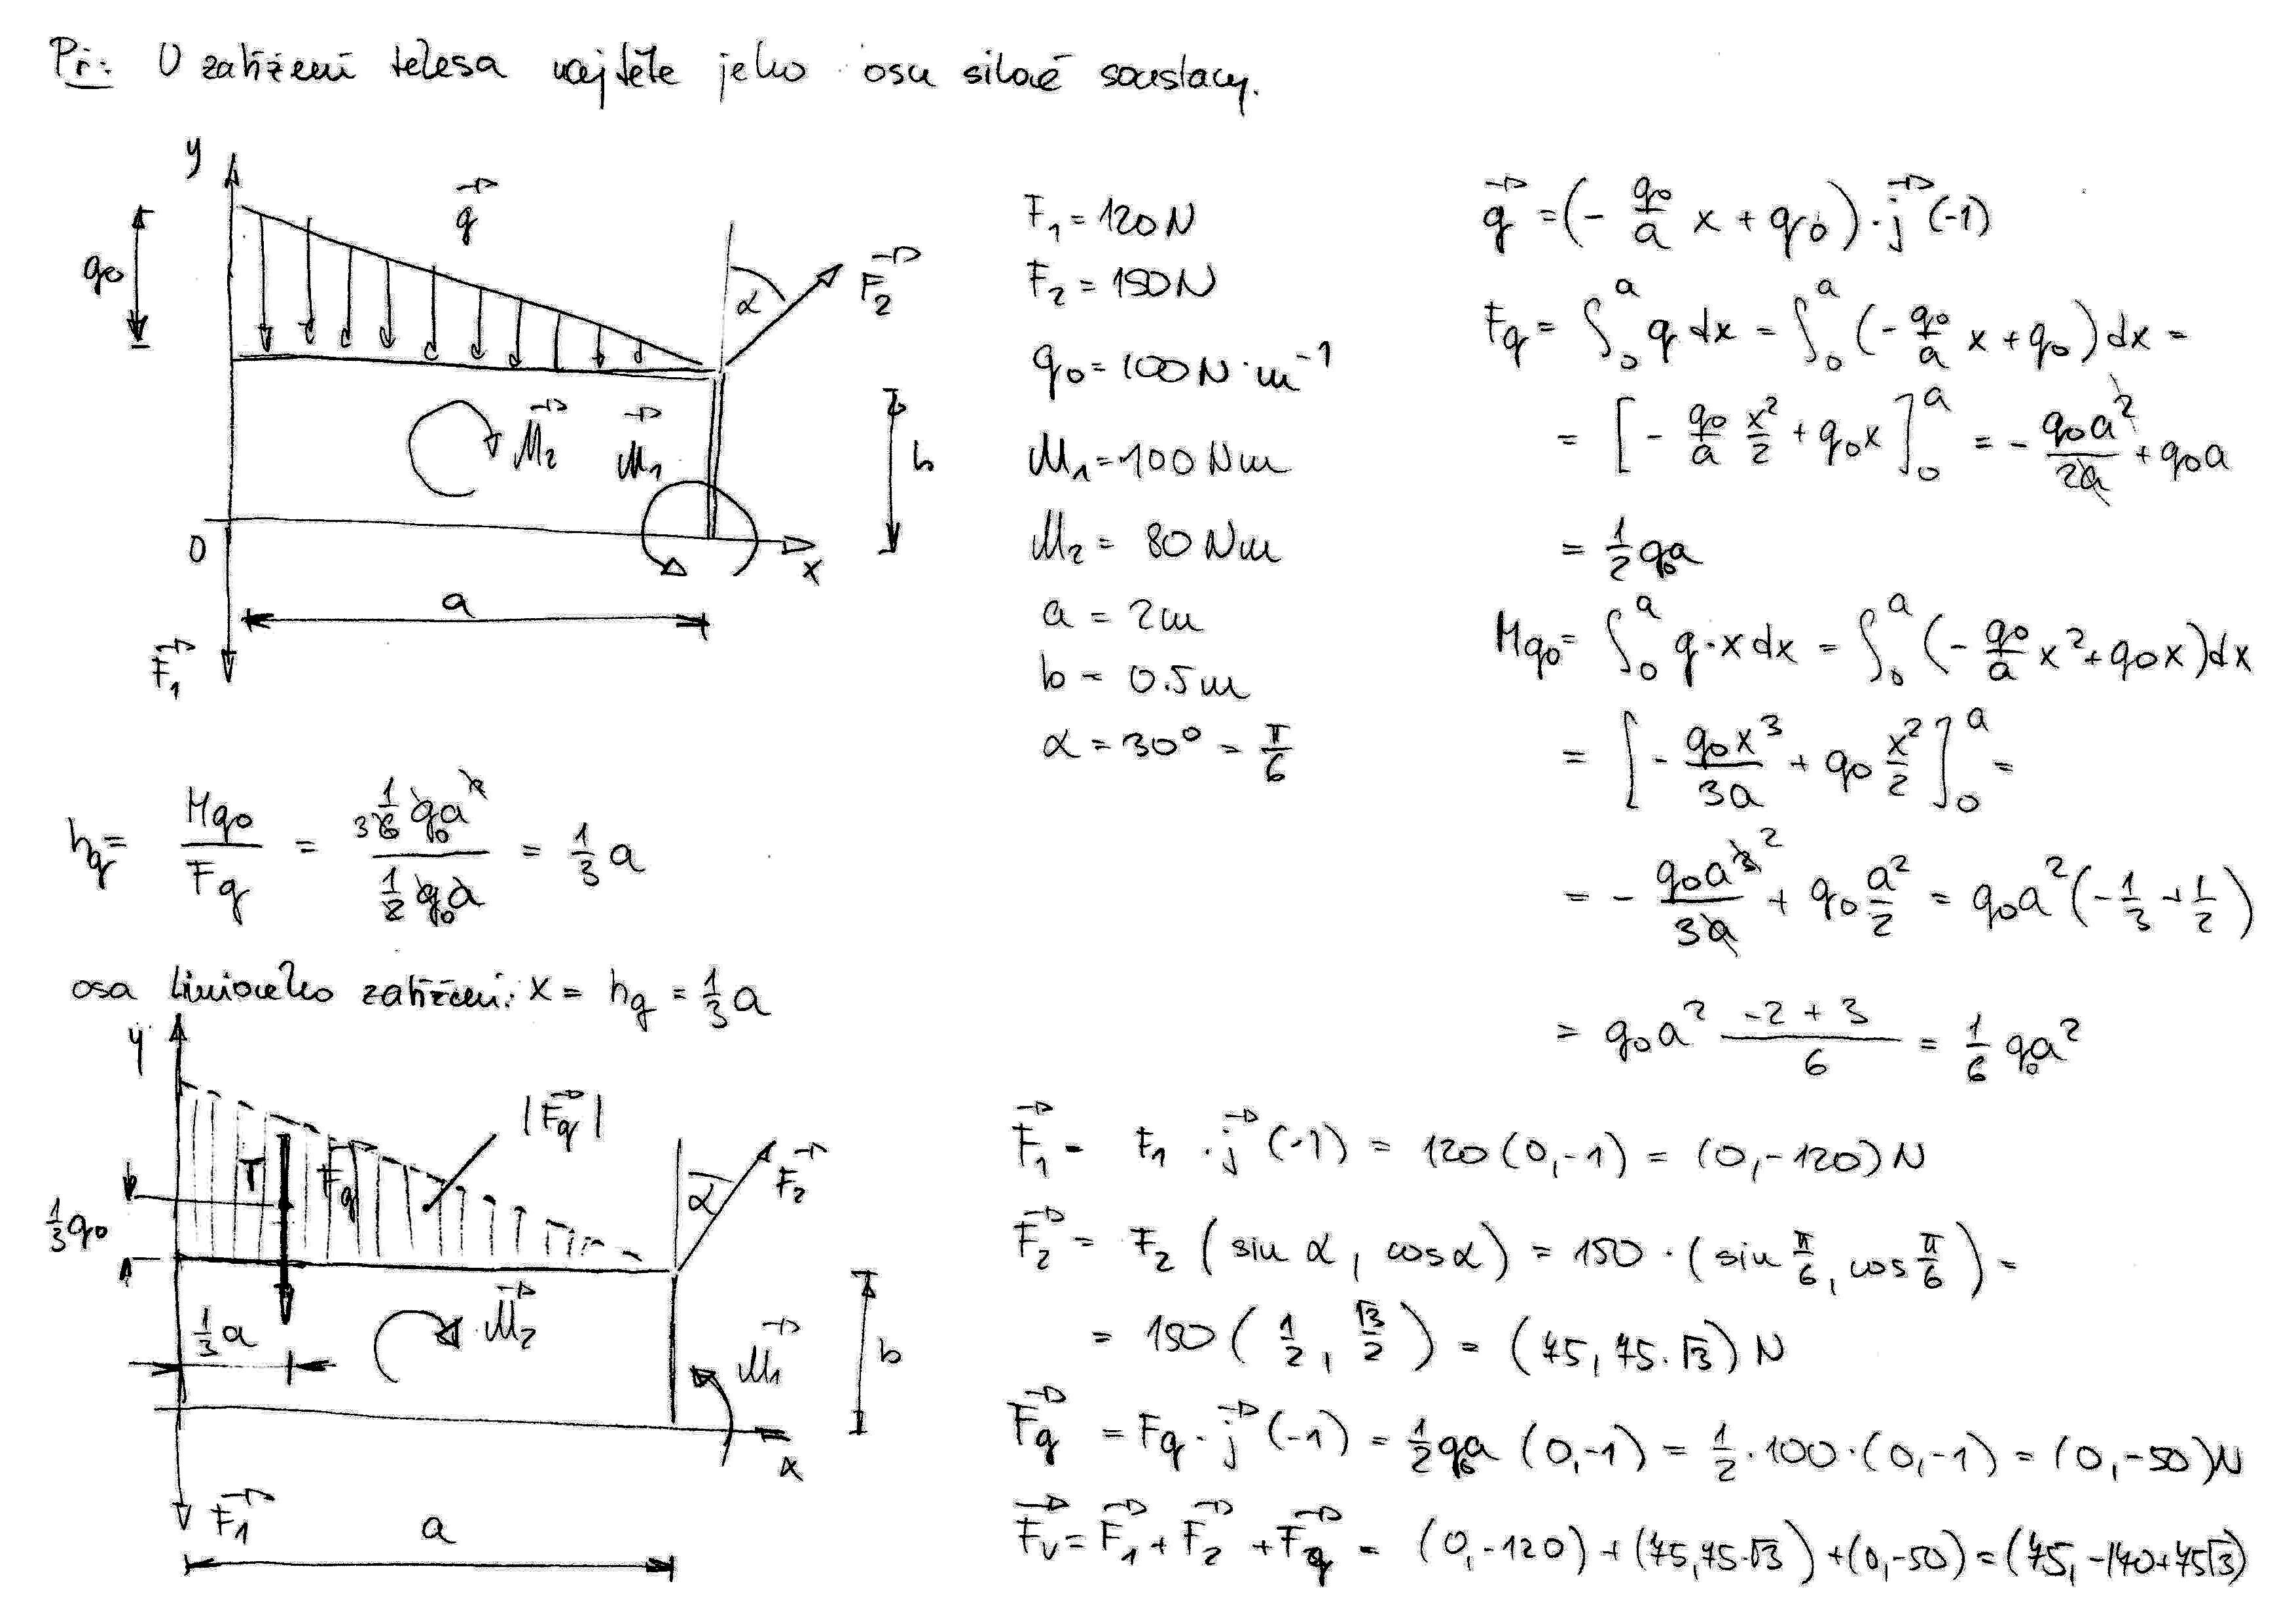 Př: U zatížení tělesa najděte jeho osu silové soustavy.
y
q⃗
q₀
α
F⃗₂
M⃗₂
M⃗₁
b
0
x
a
F⃗₁
F₁ = 120 N
F₂ = 150 N
q₀ = 100 N·m⁻¹
M₁ = 100 Nm
M₂ = 80 Nm
a = 2m
b = 0.5m
α = 30° = π/6
q⃗ = (- q₀/a x + q₀)·j⃗(-1)
Fq = ∫₀ᵃ q dx = ∫₀ᵃ (- q₀/a x + q₀) dx =
= [- q₀/a x²/2 + q₀x]₀ᵃ = - q₀a²/2a + q₀a
= 1/2 q₀a
Mq₀ = ∫₀ᵃ q·x dx = ∫₀ᵃ (- q₀/a x² + q₀x) dx
= [- q₀x³/3a + q₀ x²/2]₀ᵃ =
= - q₀a³ ²/3a + q₀ a²/2 = q₀a² (- 1/3 + 1/2)
= q₀a² (-2 + 3)/6 = 1/6 q₀a²
hq = Mq₀/Fq = (3 1/6 q₀a²)/(1/2 q₀a) = 1/3 a
osa liniového zatížení: x = hq = 1/3 a
y
|F⃗q|
T
F⃗q
α
F⃗₂
1/3 q₀
1/3 a
M⃗₂
M⃗₁
b
x
F⃗₁
a
F⃗₁ = F₁·j⃗(-1) = 120(0,-1) = (0,-120) N
F⃗₂ = F₂ (sin α, cos α) = 150·(sin π/6, cos π/6) =
= 150 (1/2, √3/2) = (75, 75·√3) N
F⃗q = Fq·j⃗(-1) = 1/2 q₀a (0,-1) = 1/2·100·(0,-1) = (0,-50) N
F⃗v = F⃗₁ + F⃗₂ + F⃗q = (0,-120) + (75,75·√3) + (0,-50) = (75, -140+75√3)